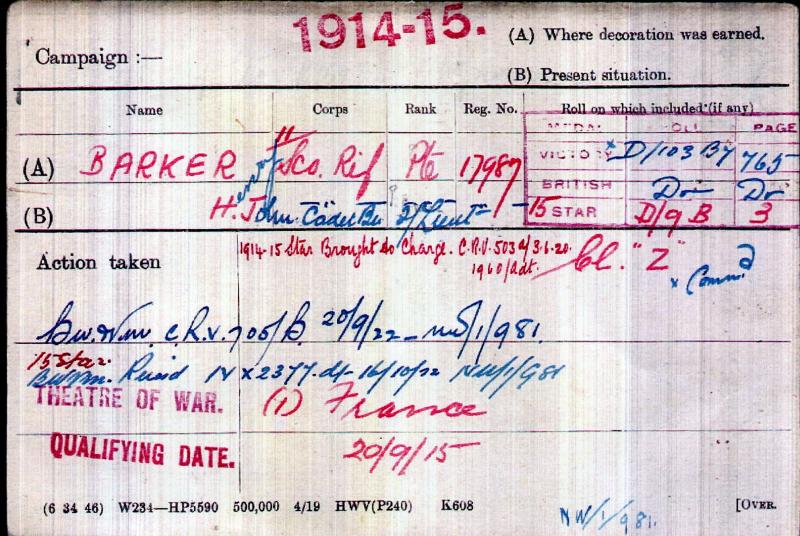 1914-15.
(A) Where decoration was earned.
Campaign :—
(B) Present situation.
Name Corps Rank Reg. No. Roll on which included (if any)
MEDAL ROLL PAGE
(A) BARKER Sco. Rif Pte 17987
VICTORY D/103 B7 765
BRITISH Do Do
(B) H. John Cadet Bn 2/Lieut
15 STAR D/9 B 3
Action taken
1914-15 Star Brought to Charge. C.R.V. 503 d/ 3.6.20.
1960/Adt.
Cl. "Z"
x Comm.d
B.W. & V.M. C.R.V. 705/B. 20/9/22 – NW/1/981.
15 Star
IV x 2377. d/- 16/10/22 NW/1/981
THEATRE OF WAR. (1) France
QUALIFYING DATE. 20/9/15
(6 34 46) W234—HP5590 500,000 4/19 HWV(P240) K608 [OVER.
NW/1/981.